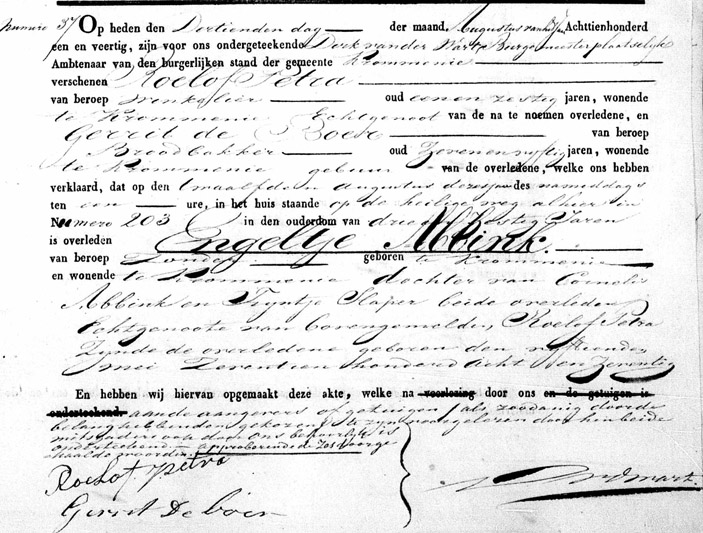 Numero 37 Op heden den Dertienden dag der maand Augustus van het jaar Achttienhonderd
een en veertig, zijn voor ons ondergeteekende Dirk van der Mart Burgemeester plaatselijke
Ambtenaar van den burgerlijken stand der gemeente Krommenie
verschenen Roelof Petra
van beroep Winkelier oud eenen zestig jaren, wonende
te Krommenie Echtgenoot van de na te noemen overledene, en
Gerrit de Boer van beroep
Broodbakker oud jaren, wonende
te Krommenie gebuur van de overledene, welke ons hebben
verklaard, dat op den twaalfden Augustus dezes jaars des namiddags
ten een ure, in het huis staande op de heiligeweg alhier in
Numero 203 in den ouderdom van drie en zestig Jaren
is overleden Engeltje Abbink
van beroep Zonder geboren te Krommenie
en wonende te Krommenie dochter van Cornelis
Abbink en Tryntje Slaper beide overleden
Echtgenoote van Roelof Petra
Zynde de overledene geboren den
mei Zeventien honderd acht en Zeventig
En hebben wij hiervan opgemaakt deze akte, welke na voorlezing door ons en de getuigen is
onderteekend. aan de aangevers of getuigen als zoodanig door de
belanghebbenden gekozen te zyn voorgelezen door hen beide
mitsgaders ook door Ons behoorlyk is
onderteekend, approberende de Zes doorge
haalde woorden
Roelof Petra
Gerrit De boer